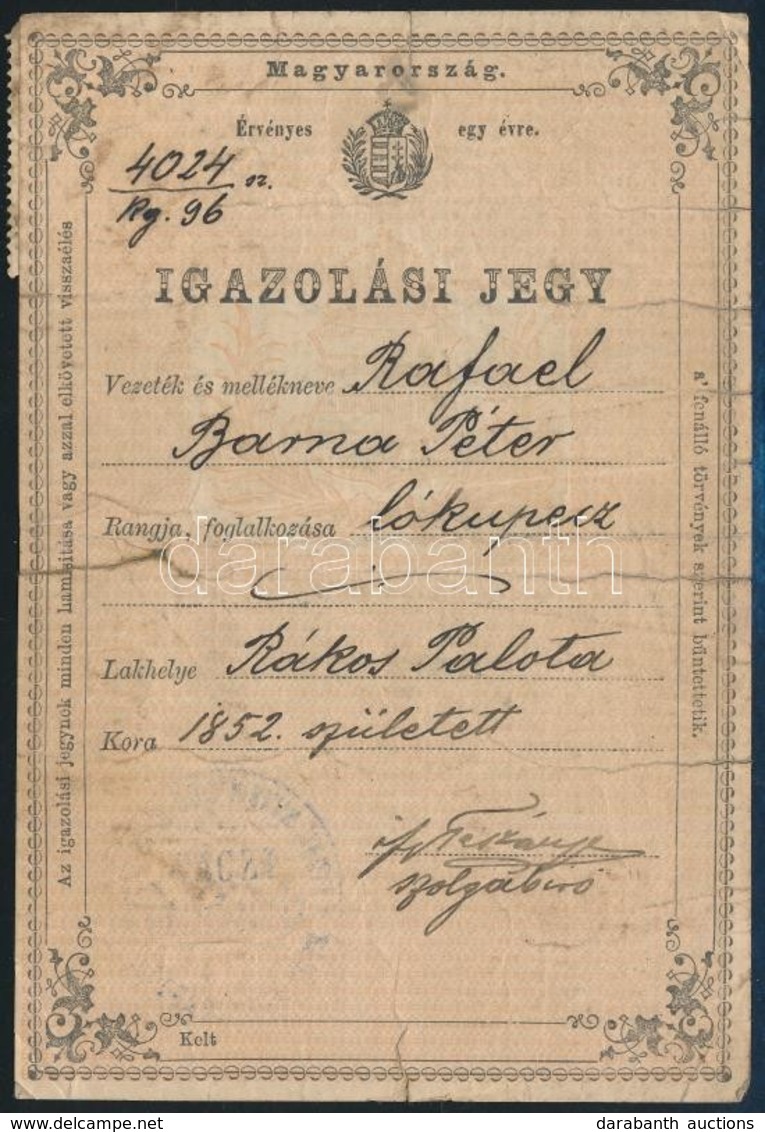 Magyarország.
Érvényes egy évre.
4024 sz.
Kg. 96
IGAZOLÁSI JEGY
Vezeték és mellékneve Rafael
Barna Péter
Rangja, foglalkozása lókupecz
Lakhelye Rákos Palota
Kora 1852. született
szolgabiró
Kelt
Az igazolási jegynek minden hamisitása vagy azzal elkövetett visszaélés
a' fenálló törvények szerint büntettetik.
darabanth
darabanth auctions